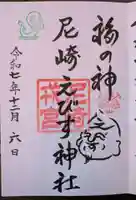 福の神
尼崎えびす神社
令和七年十二月六日